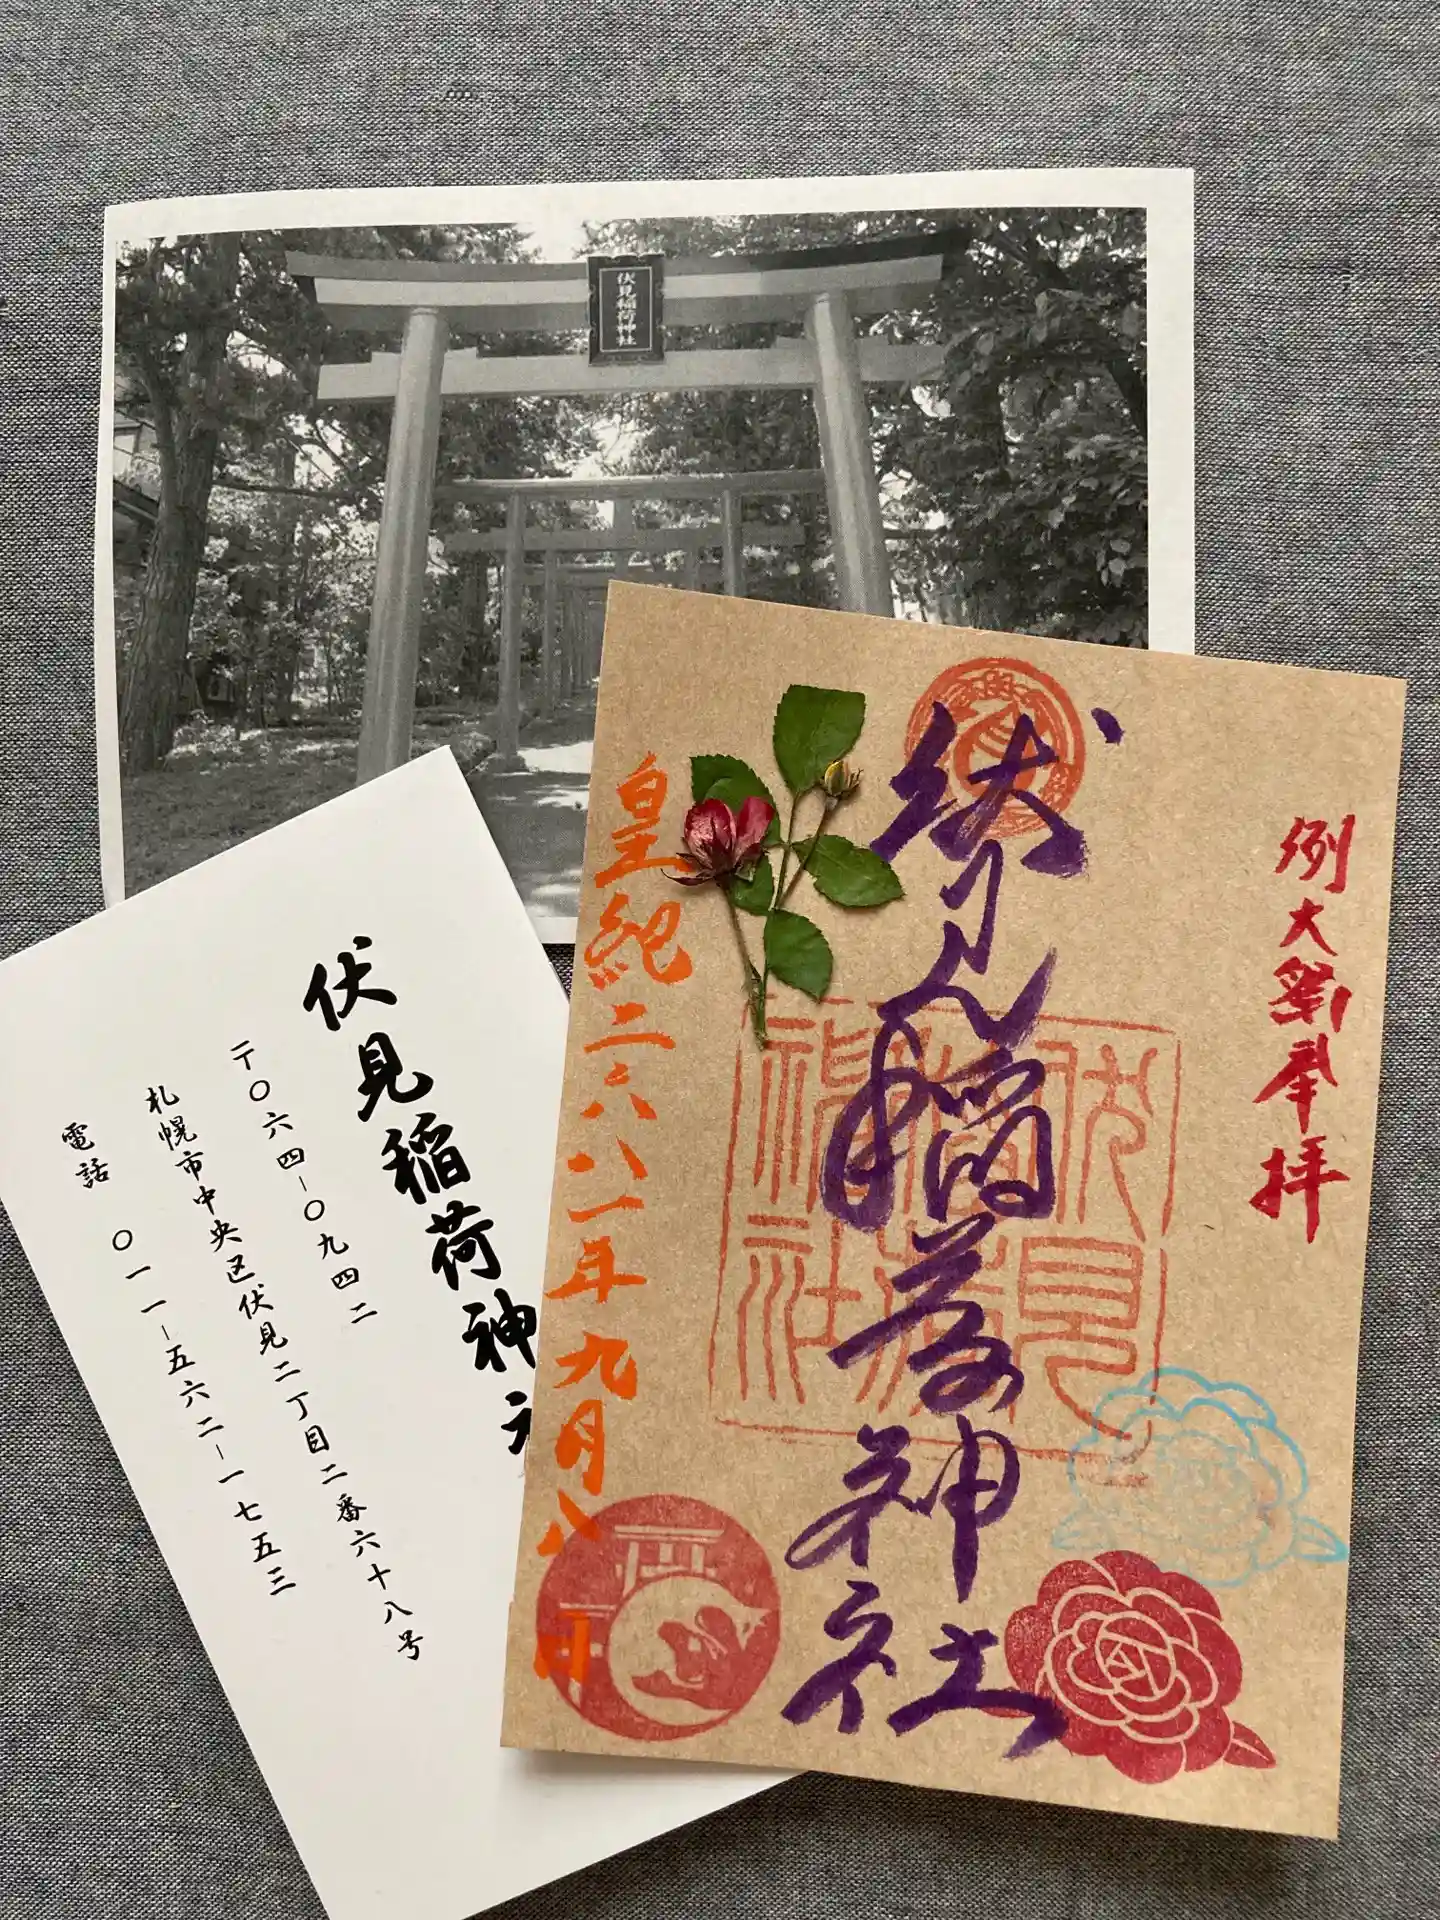 伏見稲荷神社
伏見稲荷神社
〒〇六四-〇九四二
札幌市中央区伏見二丁目二番六十八号
電話 〇一一-五六二-一七五三
例大祭奉拝
伏見稲荷神社
皇紀二六八二年九月八日
伏見稲荷神社